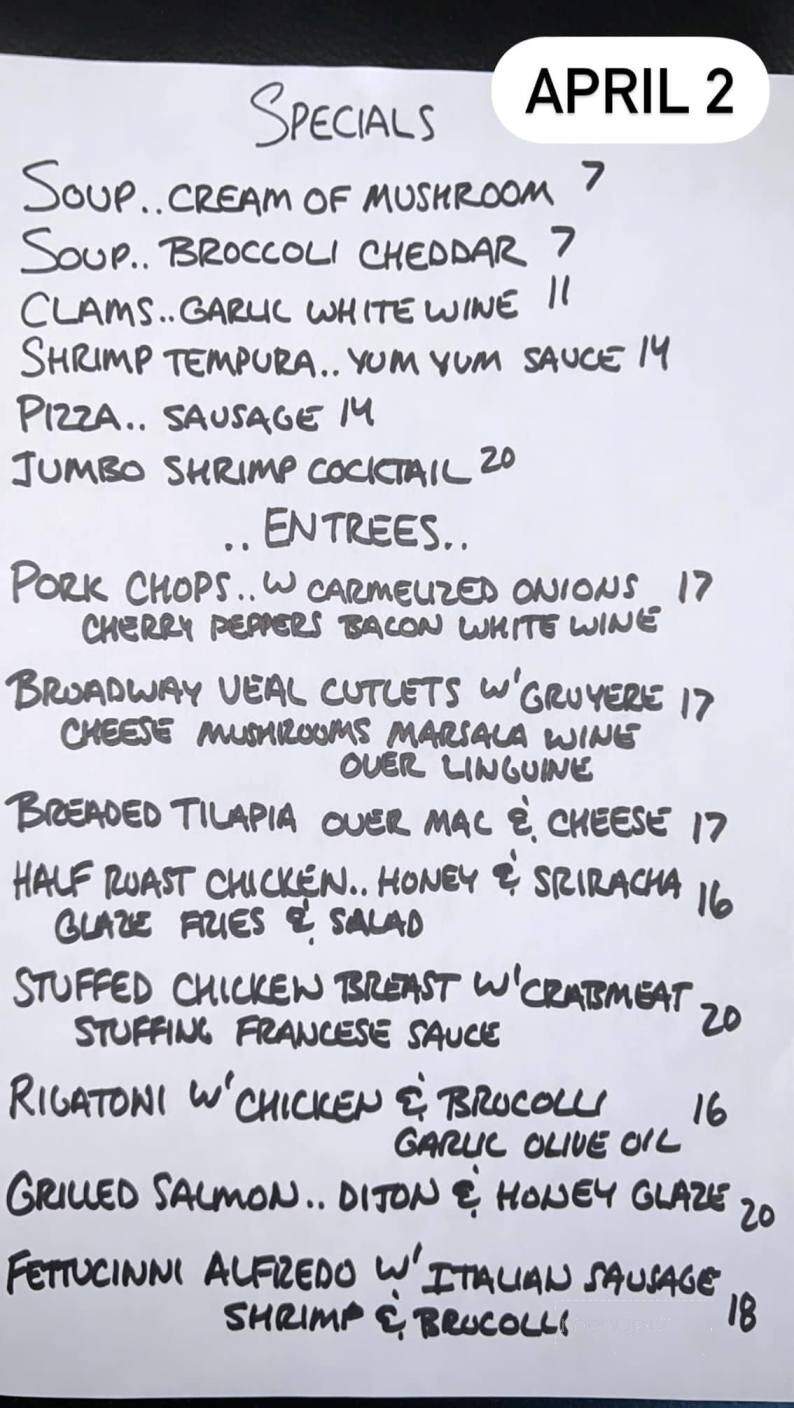 APRIL 2
SPECIALS
SOUP.. CREAM OF MUSHROOM 7
SOUP.. BROCCOLI CHEDDAR 7
CLAMS.. GARLIC WHITE WINE 11
SHRIMP TEMPURA.. YUM YUM SAUCE 14
PIZZA.. SAUSAGE 14
JUMBO SHRIMP COCKTAIL 20
.. ENTREES..
PORK CHOPS.. W CARMELIZED ONIONS 17
CHERRY PEPPERS BACON WHITE WINE
BROADWAY VEAL CUTLETS W' GRUYERE 17
CHEESE MUSHROOMS MARSALA WINE
OVER LINGUINE
BREADED TILAPIA OVER MAC & CHEESE 17
HALF ROAST CHICKEN.. HONEY & SRIRACHA 16
GLAZE FRIES & SALAD
STUFFED CHICKEN BREAST W' CRABMEAT 20
STUFFING FRANCESE SAUCE
RIGATONI W' CHICKEN & BROCOLLI 16
GARLIC OLIVE OIL
GRILLED SALMON.. DIJON & HONEY GLAZE 20
FETTUCINNI ALFREDO W' ITALIAN SAUSAGE
SHRIMP & BROCOLLI 18